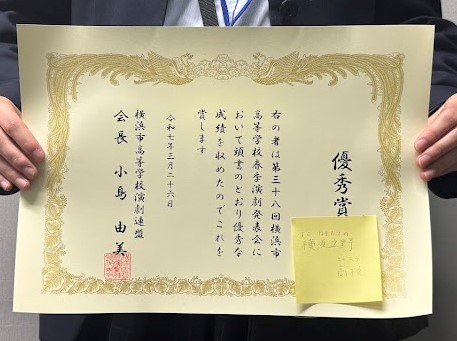 優秀賞
右の者は第三十八回横浜市
高等学校春季演劇発表会に
おいて頭書のとおり優秀な
成績を収めたのでこれを
賞します
令和七年三月二十六日
横浜市高等学校演劇連盟
会長 小島 由美
高校